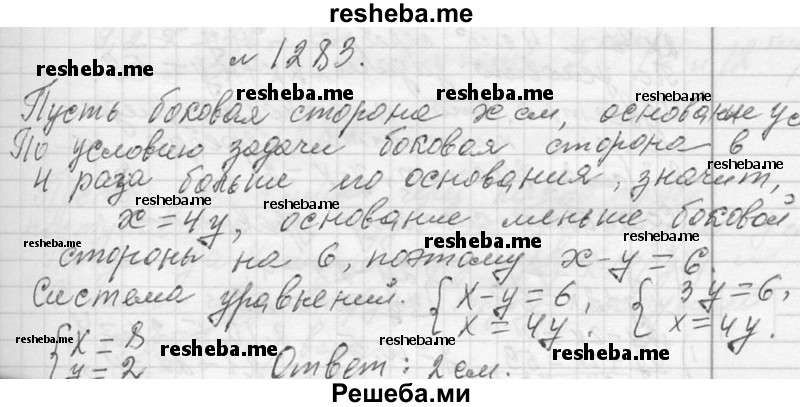 resheba.me
№ 1283.
resheba.me resheba.me
resheba.me resheba.me resheba.me
Пусть боковая сторона x см, основание y с
По условию задачи боковая сторона в
resheba.me
4 раза больше его основания, значит,
resheba.me resheba.me
x = 4y, основание меньше боковой
resheba.me resheba.me
стороны на 6, поэтому x - y = 6.
resheba.me resheba.me
Система уравнений. { x - y = 6, { 3y = 6,
x = 4y. x = 4y.
{ x = 8
resheba.me resheba.me
y = 2 Ответ: 2 см.
Решеба.ми